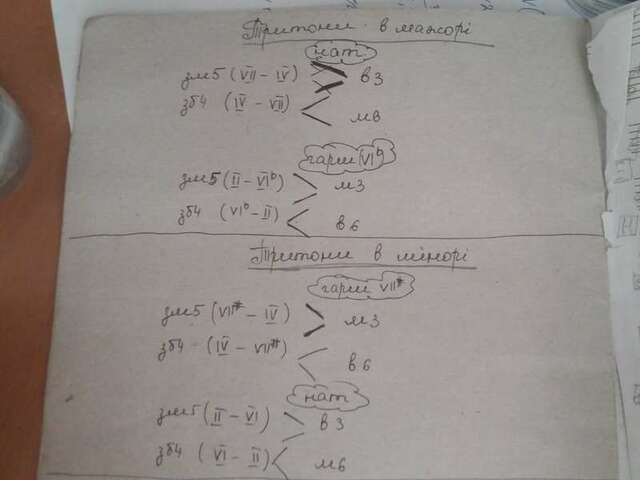 Тритони в мажорі
нат
зм5 (VII - IV) > в3
зб4 (IV - VII) < м6
гарм VI♭
зм5 (II - VI♭) > м3
зб4 (VI♭ - II) < в6
Тритони в мінорі
гарм VII#
зм5 (VII# - IV) > м3
зб4 (IV - VII#) < в6
нат
зм5 (II - VI) > в3
зб4 (VI - II) < м6